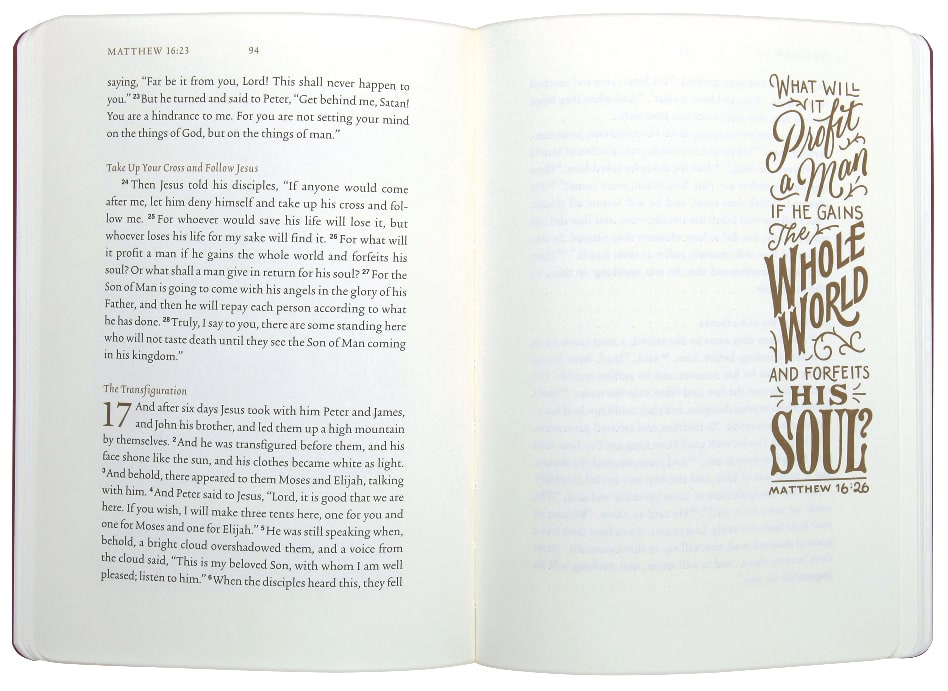 MATTHEW 16:23 94
saying, “Far be it from you, Lord! This shall never happen to
you.” 23 But he turned and said to Peter, “Get behind me, Satan!
You are a hindrance to me. For you are not setting your mind
on the things of God, but on the things of man.”
Take Up Your Cross and Follow Jesus
24 Then Jesus told his disciples, “If anyone would come
after me, let him deny himself and take up his cross and fol-
low me. 25 For whoever would save his life will lose it, but
whoever loses his life for my sake will find it. 26 For what will
it profit a man if he gains the whole world and forfeits his
soul? Or what shall a man give in return for his soul? 27 For the
Son of Man is going to come with his angels in the glory of his
Father, and then he will repay each person according to what
he has done. 28 Truly, I say to you, there are some standing here
who will not taste death until they see the Son of Man coming
in his kingdom.”
The Transfiguration
17 And after six days Jesus took with him Peter and James,
and John his brother, and led them up a high mountain
by themselves. 2 And he was transfigured before them, and his
face shone like the sun, and his clothes became white as light.
3 And behold, there appeared to them Moses and Elijah, talking
with him. 4 And Peter said to Jesus, “Lord, it is good that we are
here. If you wish, I will make three tents here, one for you and
one for Moses and one for Elijah.” 5 He was still speaking when,
behold, a bright cloud overshadowed them, and a voice from
the cloud said, “This is my beloved Son, with whom I am well
pleased; listen to him.” 6 When the disciples heard this, they fell
WHAT WILL
IT
Profit
a Man
IF HE GAINS
The
WHOLE
WORLD
AND FORFEITS
HIS
SOUL?
MATTHEW 16:26